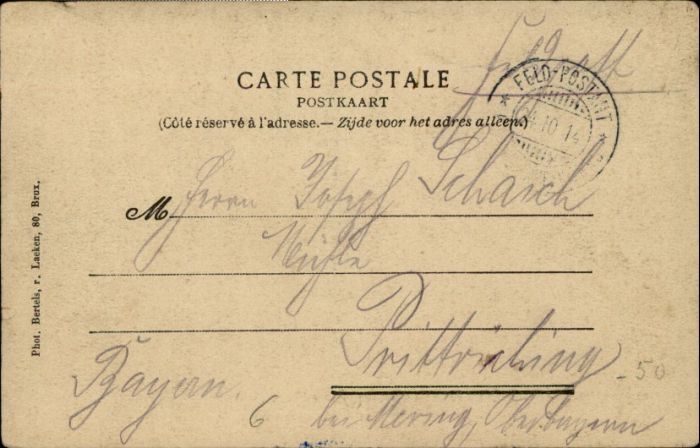 CARTE POSTALE
POSTKAART
(Côté réservé à l'adresse.— Zijde voor het adres alleen.)
FELD-POSTAMT
4.10.14
M Herrn Joseph Schasch
Mühle
Prittriching
Bayern.
bei Mering, Oberbayern
6
-50
Phot. Bertels, r. Laeken, 80, Brux.